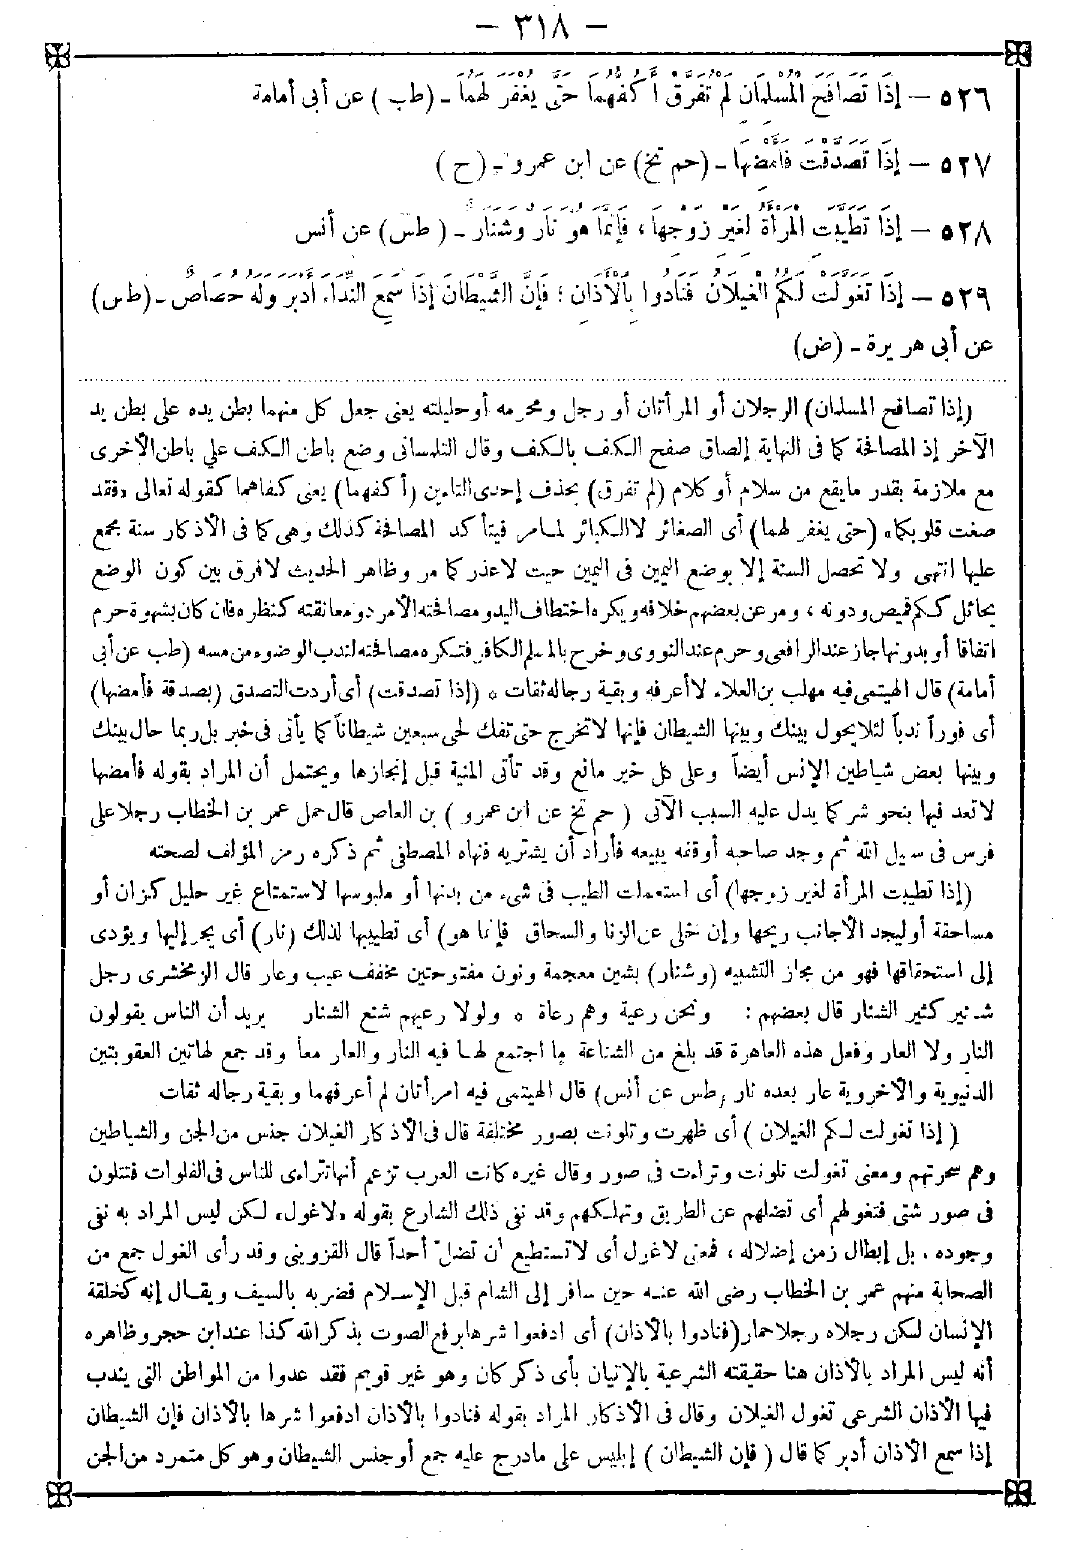 — ٣١٨ —
٥٢٦ — إِذَا تَصَافَحَ الْمُسْلِمَانِ لَمْ تَفَرَّقْ أَكُفُّهُمَا حَتَّى يُغْفَرَ لَهُمَا ـ (طب) عن أبى أمامة
٥٢٧ — إِذَا تَصَدَّقْتَ فَأَمْضِهَا ـ (حم تخ) عن ابن عمرو ـ (ح)
٥٢٨ — إِذَا تَطَيَّبَتِ الْمَرْأَةُ لِغَيْرِ زَوْجِهَا، فَإِنَّمَا هُوَ نَارٌ وَشَنَارٌ ـ (طس) عن أنس
٥٢٩ — إِذَا تَغَوَّلَتْ لَكُمُ الْغِيلَانُ فَنَادُوا بِالْأَذَانِ؛ فَإِنَّ الشَّيْطَانَ إِذَا سَمِعَ النِّدَاءَ أَدْبَرَ وَلَهُ حُصَاصٌ ـ (طس)
عن أبى هريرة ـ (ض)
(إذا تصافح المسلمان) الرجلان أو المرأتان أو رجل ومحرمه أو حليلته يعنى جعل كل منهما بطن يده على بطن يد
الآخر إذ المصافحة كما فى النهاية إلصاق صفح الكف بالكف وقال التلمسانى وضع باطن الكف على باطن الأخرى
مع ملازمة بقدر ما يقع من سلام أو كلام (لم تفرق) بحذف إحدى التاءين (أكفهما) يعنى كفاهما كقوله تعالى «فقد
صغت قلوبكما» (حتى يغفر لهما) أى الصغائر لا الكبائر لما مر فيتأكد المصافحة كذلك وهى كما فى الأذكار سنة مجمع
عليها انتهى ولا تحصل السنة إلا بوضع اليمين فى اليمين حيث لا عذر كما مر وظاهر الحديث لا فرق بين كون الوضع
بحائل ككم قميص ودونه، ومر عن بعضهم خلافه ويكره اختطاف اليد ومصافحته الأمرد ومعانقته كنظره فان كان بشهوة حرم
اتفاقا أو بدونها جاز عند الرافعى وحرم عند النووى وخرج بالمسلم الكافر فتكره مصافحته لندب الوضوء من مسه (طب عن أبى
أمامة) قال الهيتمى فيه مهلب بن العلاء لا أعرفه وبقية رجاله ثقات * (إذا تصدقت) أى أردت التصدق (بصدقة فأمضها)
أى فوراً ندباً لئلا يحول بينك وبينها الشيطان فإنها لا تخرج حتى تفك لحى سبعين شيطاناً كما يأتى فى خبر بل ربما حال بينك
وبينها بعض شياطين الإنس أيضاً وعلى كل خير مانع وقد تأتى المنية قبل إنجازها ويحتمل أن المراد بقوله فأمضها
لا تعد فيها بنحو شر كما يدل عليه السبب الآتى (حم تخ عن ابن عمرو) بن العاص قال حمل عمر بن الخطاب رجلا على
فرس فى سبيل الله ثم وجد صاحبه أوقفه يبيعه فأراد أن يشتريه فنهاه المصطفى ثم ذكره رمز المؤلف لصحته
(إذا تطيبت المرأة لغير زوجها) أى استعملت الطيب فى شىء من بدنها أو ملبوسها لاستمتاع غير حليل كزان أو
مساحقة أو ليجد الأجانب ريحها وإن خلى عن الزنا والسحاق (فإنما هو) أى تطييبها لذلك (نار) أى يجر إليها ويؤدى
إلى استحقاقها فهو من مجاز التشبيه (وشنار) بشين معجمة ونون مفتوحتين مخفف عيب وعار قال الزمخشرى رجل
شنير كثير الشنار قال بعضهم: ونحن رعية وهم رعاة * ولولا رعيهم شنع الشنار يريد أن الناس يقولون
النار ولا العار وفعل هذه العاهرة قد بلغ من الشناعة ما اجتمع لها فيه النار والعار معا وقد جمع لهاتين العقوبتين
الدنيوية والأخروية عار بعده نار (طس عن أنس) قال الهيتمى فيه امرأتان لم أعرفهما وبقية رجاله ثقات
(إذا تغولت لكم الغيلان) أى ظهرت وتلونت بصور مختلفة قال فى الأذكار الغيلان جنس من الجن والشياطين
وهم سحرتهم ومعنى تغولت تلونت وتراءت فى صور وقال غيره كانت العرب تزعم أنها تتراءى للناس فى الفلوات فتتلون
فى صور شتى فتغولهم أى تضلهم عن الطريق وتهلكهم وقد نفى ذلك الشارع بقوله «لا غول» لكن ليس المراد به نفى
وجوده، بل إبطال زمن إضلاله، فمعنى لا غول أى لا تستطيع أن تضل أحداً قال القزوينى وقد رأى الغول جمع من
الصحابة منهم عمر بن الخطاب رضى الله عنه حين سافر إلى الشام قبل الإسلام فضربه بالسيف ويقال إنه كخلقة
الإنسان لكن رجلاه رجلا حمار (فنادوا بالأذان) أى ادفعوا شرها برفع الصوت بذكر الله كذا عند ابن حجر وظاهره
أنه ليس المراد بالأذان هنا حقيقته الشرعية بالإتيان بأى ذكر كان وهو غير قويم فقد عدوا من المواطن التى يندب
فيها الأذان الشرعى تغول الغيلان وقال فى الأذكار المراد بقوله فنادوا بالأذان ادفعوا شرها بالأذان فإن الشيطان
إذا سمع الأذان أدبر كما قال (فإن الشيطان) إبليس على مادرج عليه جمع أو جنس الشيطان وهو كل متمرد من الجن